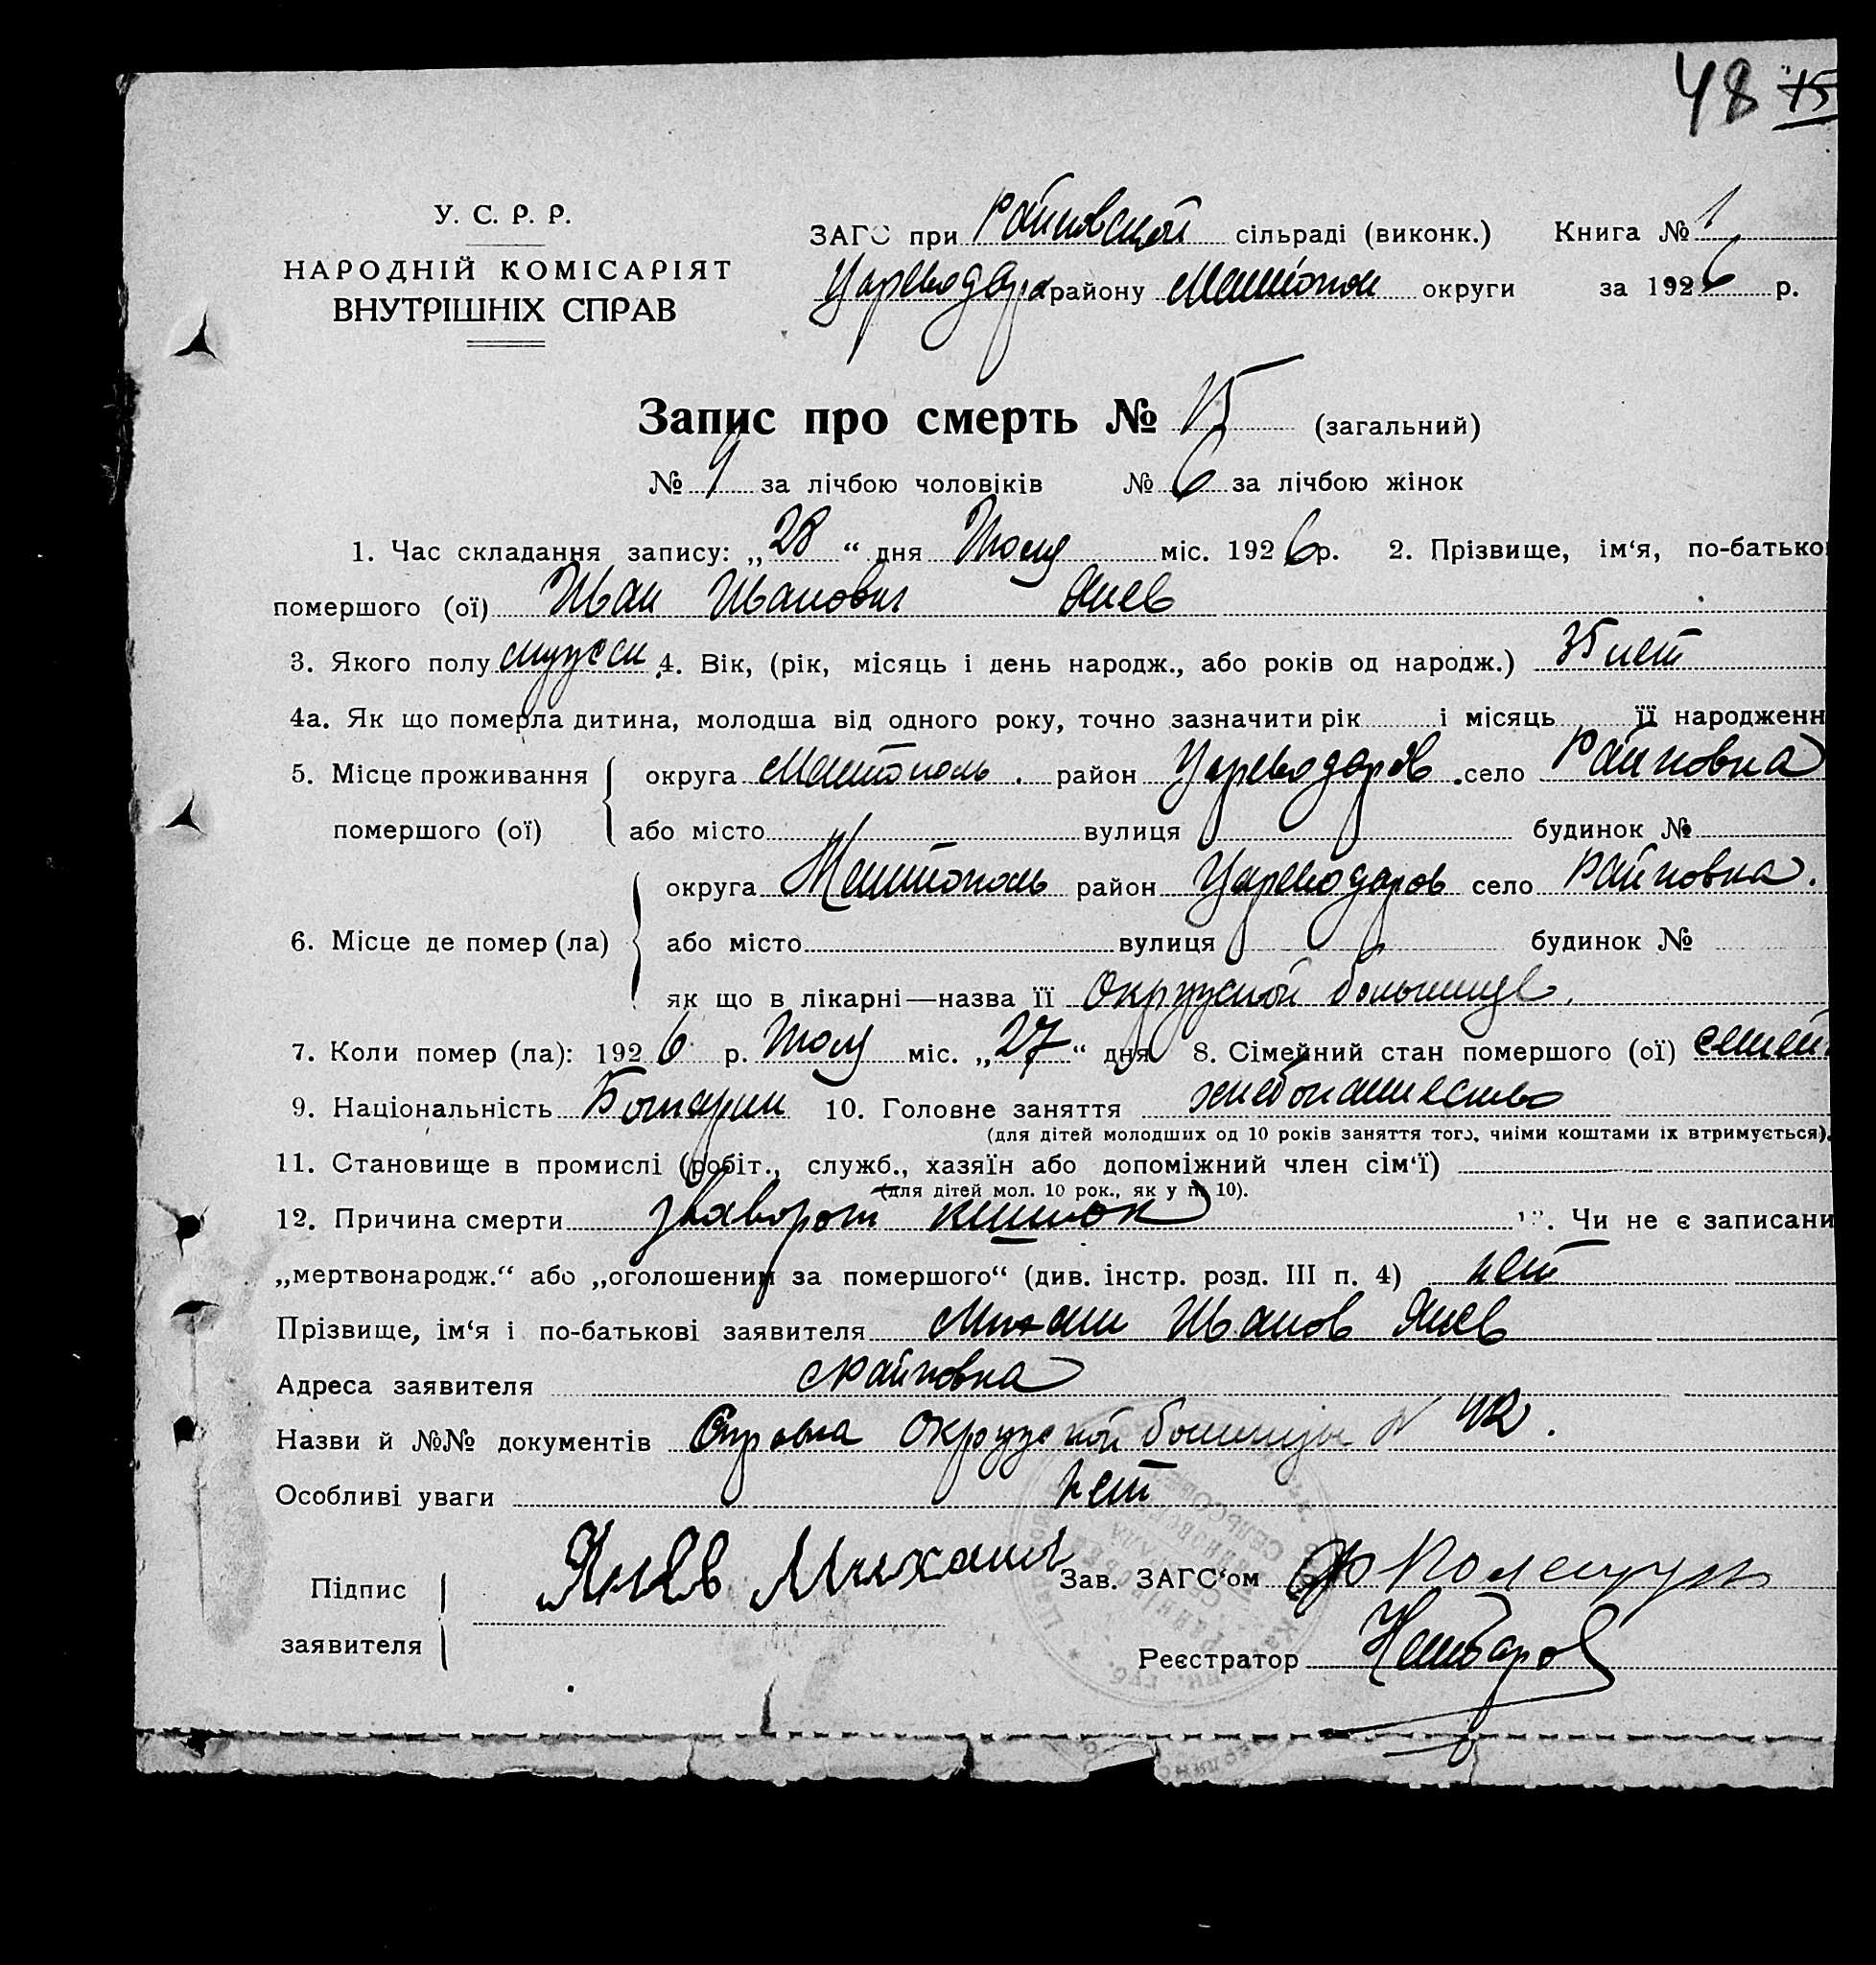 48 15
У. С. Р. Р.
НАРОДНІЙ КОМІСАРІЯТ
ВНУТРІШНІХ СПРАВ
ЗАГС при Райновской сільраді (виконк.) Книга № 1
Цареводар. району Мелитопол округи за 1926 р.
Запис про смерть № 15 (загальний)
№ 9 за лічбою чоловіків № 6 за лічбою жінок
1. Час складання запису: „28“ дня Июля міс. 1926 р. 2. Прізвище, ім‘я, по-батько
померлого (ої) Иван Иванович Янев
3. Якого полу мужск 4. Вік, (рік, місяць і день народж., або років од народж.) 35 лет
4а. Як що померла дитина, молодша від одного року, точно зазначити рік і місяць її народженн
5. Місце проживання округа Мелитополь район Цареводаров село Райновка
помершого (ої) або місто вулиця будинок №
округа Мелитополь район Цареводаров село Райновка.
6. Місце де помер (ла) або місто вулиця будинок №
як що в лікарні—назва її Окружной больнице.
7. Коли помер (ла): 1926 р. Июля міс. „27“ дня 8. Сімейний стан помершого (ої) семей
9. Національність Болгарин 10. Головне заняття хлебопашество
(для дітей молодших од 10 років заняття того, чиїми коштами їх втримується).
11. Становище в промислі (робіт., служб., хазяїн або допоміжний член сім‘ї)
(для дітей мол. 10 рок., як у п. 10).
12. Причина смерти заворот кишок 13. Чи не є записани
„мертвонародж.“ або „оголошеним за помершого“ (див. інстр. розд. III п. 4) нет
Прізвище, ім‘я і по-батькові заявителя Михаил Иванов Янев
Адреса заявителя с Райновка
Назви й №№ документів Справка Окружной больницы № 42.
Особливі уваги нет
Підпис заявителя Янев Михаил Зав. ЗАГС‘ом
Реєстратор